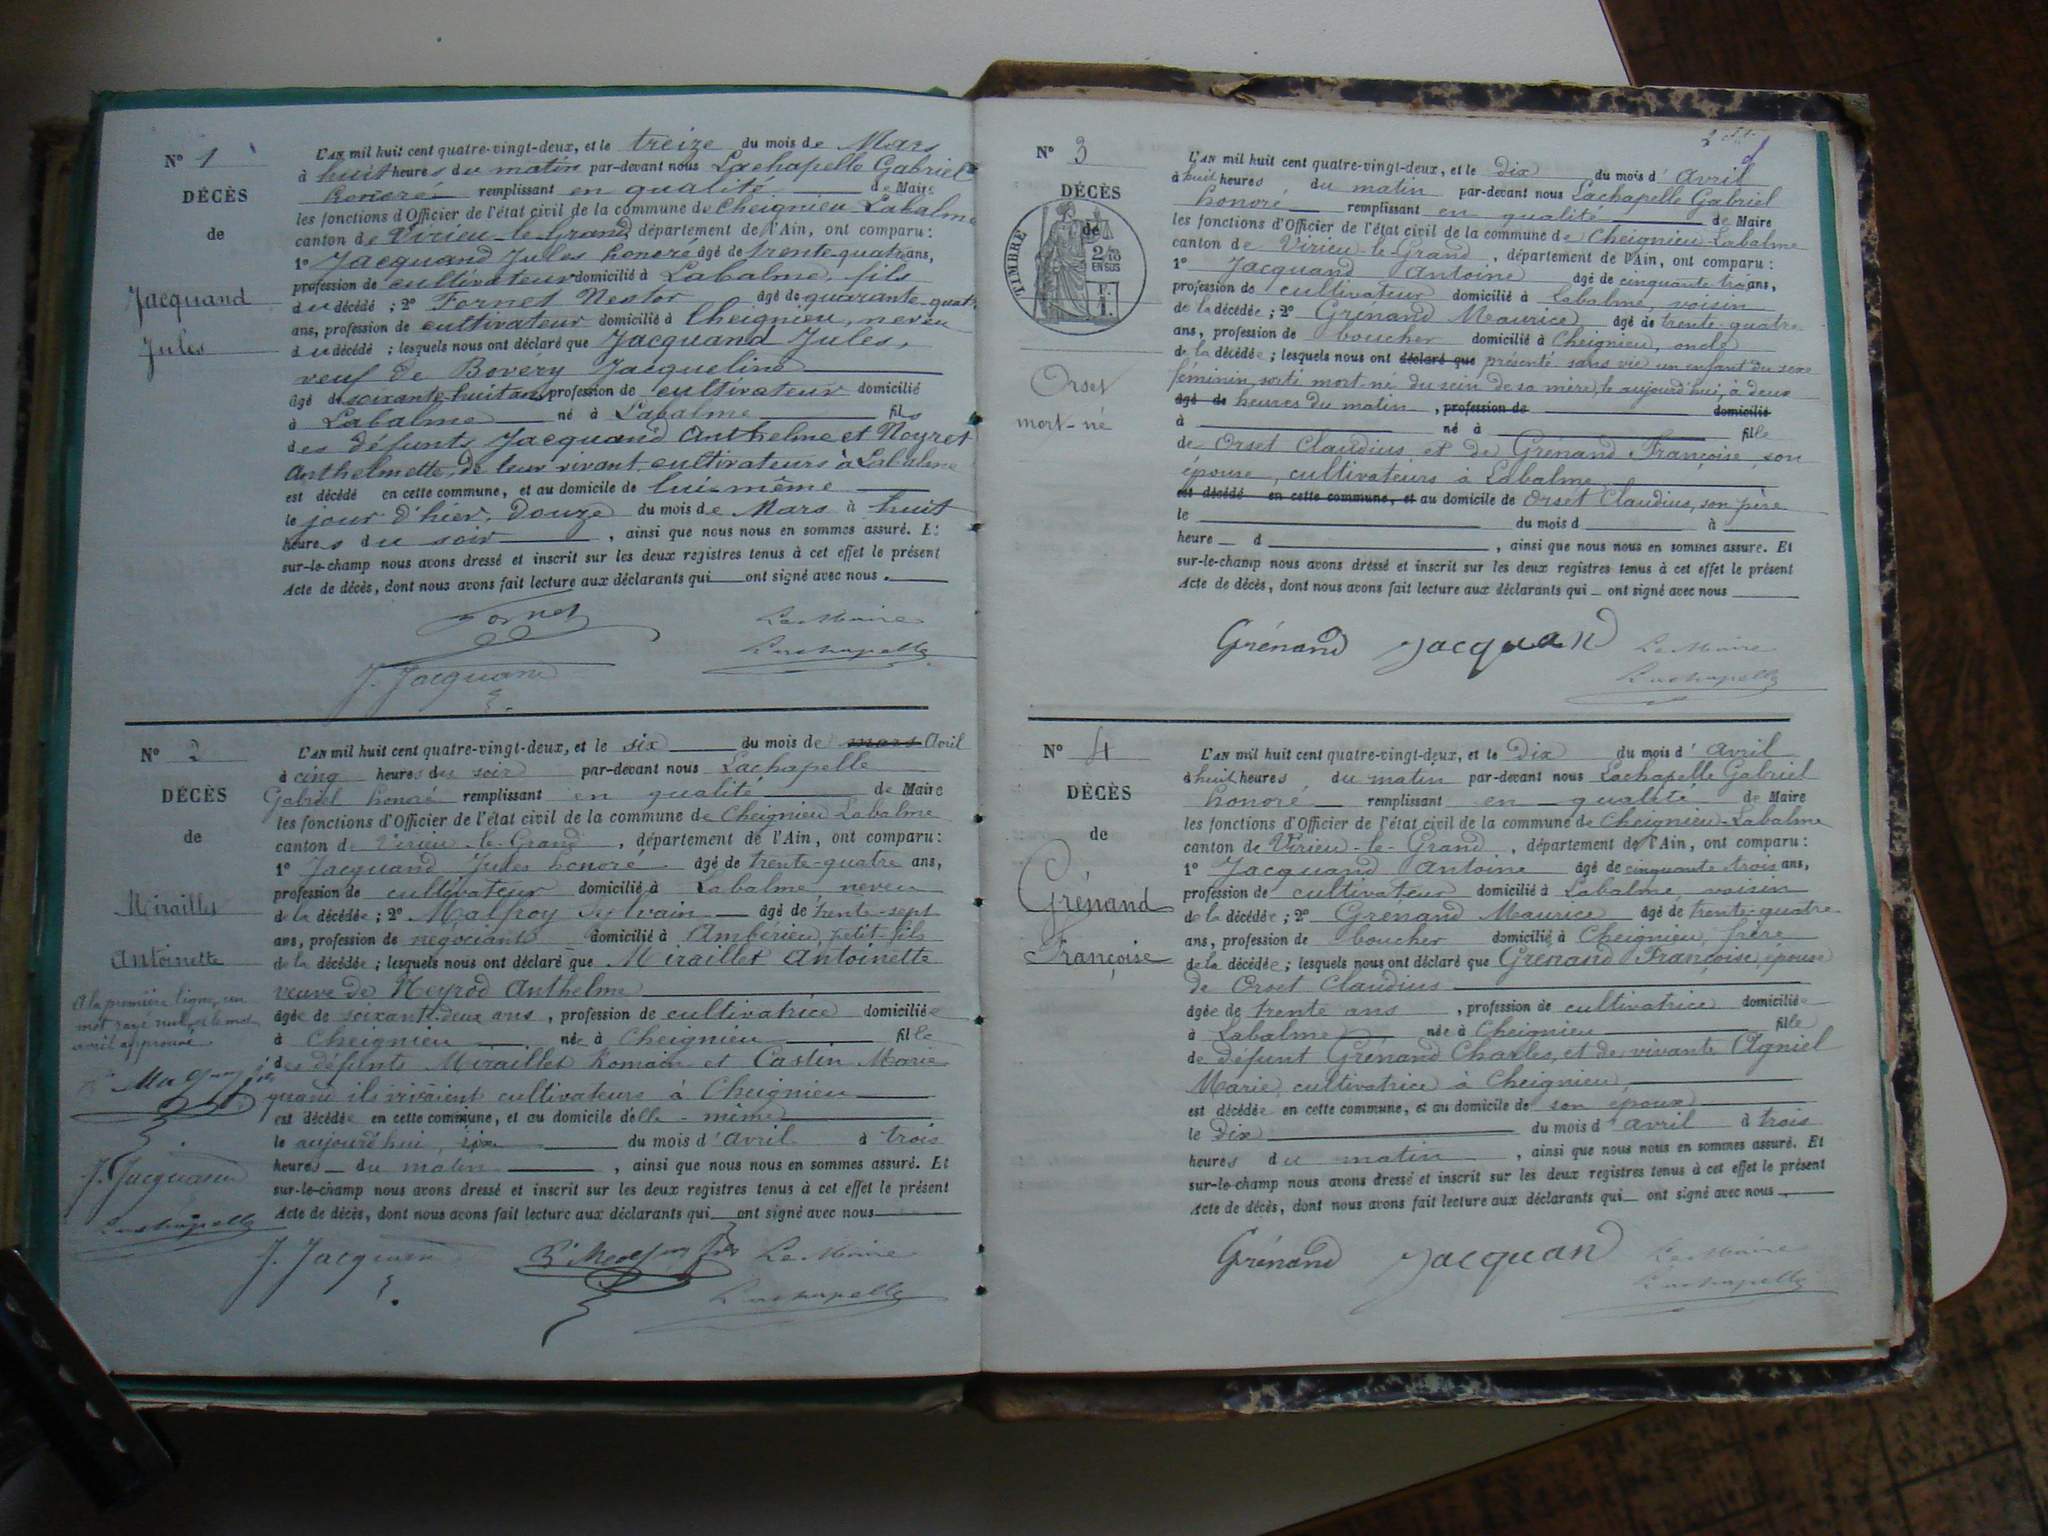 N° 1
DÉCÈS
de
Jacquand
Jules
L'AN mil huit cent quatre-vingt-deux, et le treize du mois de Mars
à huit heures du matin par-devant nous Lachapelle Gabriel
honoré remplissant en qualité de Maire
les fonctions d'Officier de l'état civil de la commune de Cheignieu Labalme
canton de Virieu-le-Grand département de l'Ain, ont comparu :
1° Jacquand Jules honoré âgé de trente-quatre ans,
profession de cultivateur domicilié à Labalme, fils
du décédé ; 2° Fornet Nestor âgé de quarante-quatre
ans, profession de cultivateur domicilié à Cheignieu, neveu
du décédé ; lesquels nous ont déclaré que Jacquand Jules,
veuf de Bovéry Jacqueline
âgé de soixante-huit ans, profession de cultivateur domicilié
à Labalme né à Labalme fils
des défunts Jacquand Anthelme et Neyret
Anthelmette, de leur vivant cultivateurs à Labalme
est décédé en cette commune, et au domicile de lui-même
le jour d'hier, douze du mois de Mars à huit
heures du soir, ainsi que nous nous en sommes assuré. Et
sur-le-champ nous avons dressé et inscrit sur les deux registres tenus à cet effet le présent
Acte de décès, dont nous avons fait lecture aux déclarants qui ont signé avec nous.
Fornet
Le Maire
Lachapelle
J. Jacquand
N° 2
DÉCÈS
de
Miraillet
Antoinette
A la première ligne, un
mot rayé nul, et le mot
avril approuvé
J. Jacquand
Lachapelle
L'AN mil huit cent quatre-vingt-deux, et le six du mois de mars Avril
à cinq heures du soir par-devant nous Lachapelle
Gabriel honoré remplissant en qualité de Maire
les fonctions d'Officier de l'état civil de la commune de Cheignieu Labalme
canton de Virieu-le-Grand, département de l'Ain, ont comparu :
1° Jacquand Jules honoré âgé de trente-quatre ans,
profession de cultivateur domicilié à Labalme, neveu
de la décédée ; 2° Malfroy Sylvain âgé de trente-sept
ans, profession de négociant domicilié à Ambérieu, petit-fils
de la décédée ; lesquels nous ont déclaré que Miraillet Antoinette
veuve de Neyrod Anthelme
âgée de soixante-deux ans, profession de cultivatrice domiciliée
à Cheignieu née à Cheignieu fille
des défunts Miraillet Romain et Castin Marie
quand ils vivaient cultivateurs à Cheignieu
est décédée en cette commune, et au domicile d'elle-même
le aujourd'hui, six du mois d'avril à trois
heures du matin, ainsi que nous nous en sommes assuré. Et
sur-le-champ nous avons dressé et inscrit sur les deux registres tenus à cet effet le présent
Acte de décès, dont nous avons fait lecture aux déclarants qui ont signé avec nous
J. Jacquand
Le Maire
Lachapelle
N° 3
DÉCÈS
de
TIMBRE
2/10
EN SUS
Orset
mort-né
L'AN mil huit cent quatre-vingt-deux, et le dix du mois d'Avril
à huit heures du matin par-devant nous Lachapelle Gabriel
honoré remplissant en qualité de Maire
les fonctions d'Officier de l'état civil de la commune de Cheignieu-Labalme
canton de Virieu-le-Grand, département de l'Ain, ont comparu :
1° Jacquand Antoine âgé de cinquante trois ans,
profession de cultivateur domicilié à Labalme, voisin
de la décédée ; 2° Grénand Maurice âgé de trente-quatre
ans, profession de boucher domicilié à Cheignieu, oncle
de la décédée ; lesquels nous ont déclaré que présenté sans vie un enfant du sexe
féminin, sorti mort-né du sein de sa mère, le aujourd'hui, à deux
âgé de heures du matin, profession de domicilié
à né à fille
de Orset Claudius et de Grénand Françoise, son
épouse, cultivateurs à Labalme
est décédé en cette commune, et au domicile de Orset Claudius, son père
le du mois d à
heure d, ainsi que nous nous en sommes assuré. Et
sur-le-champ nous avons dressé et inscrit sur les deux registres tenus à cet effet le présent
Acte de décès, dont nous avons fait lecture aux déclarants qui ont signé avec nous
Grénand Jacquand Le Maire
Lachapelle
N° 4
DÉCÈS
de
Grénand
Françoise
L'AN mil huit cent quatre-vingt-deux, et le Dix du mois d'avril
à huit heures du matin par-devant nous Lachapelle Gabriel
honoré remplissant en qualité de Maire
les fonctions d'Officier de l'état civil de la commune de Cheignieu-Labalme
canton de Virieu-le-Grand, département de l'Ain, ont comparu :
1° Jacquand Antoine âgé de cinquante trois ans,
profession de cultivateur domicilié à Labalme, voisin
de la décédée ; 2° Grénand Maurice âgé de trente-quatre
ans, profession de boucher domicilié à Cheignieu, frère
de la décédée ; lesquels nous ont déclaré que Grénand Françoise, épouse
de Orset Claudius
âgée de trente ans, profession de cultivatrice domiciliée
à Labalme née à Cheignieu fille
de défunt Grénand Charles, et de vivante Agniel
Marie, cultivatrice à Cheignieu,
est décédée en cette commune, et au domicile de son époux
le Dix du mois d'avril à trois
heures du matin, ainsi que nous nous en sommes assuré. Et
sur-le-champ nous avons dressé et inscrit sur les deux registres tenus à cet effet le présent
Acte de décès, dont nous avons fait lecture aux déclarants qui ont signé avec nous
Grénand Jacquand Le Maire
Lachapelle